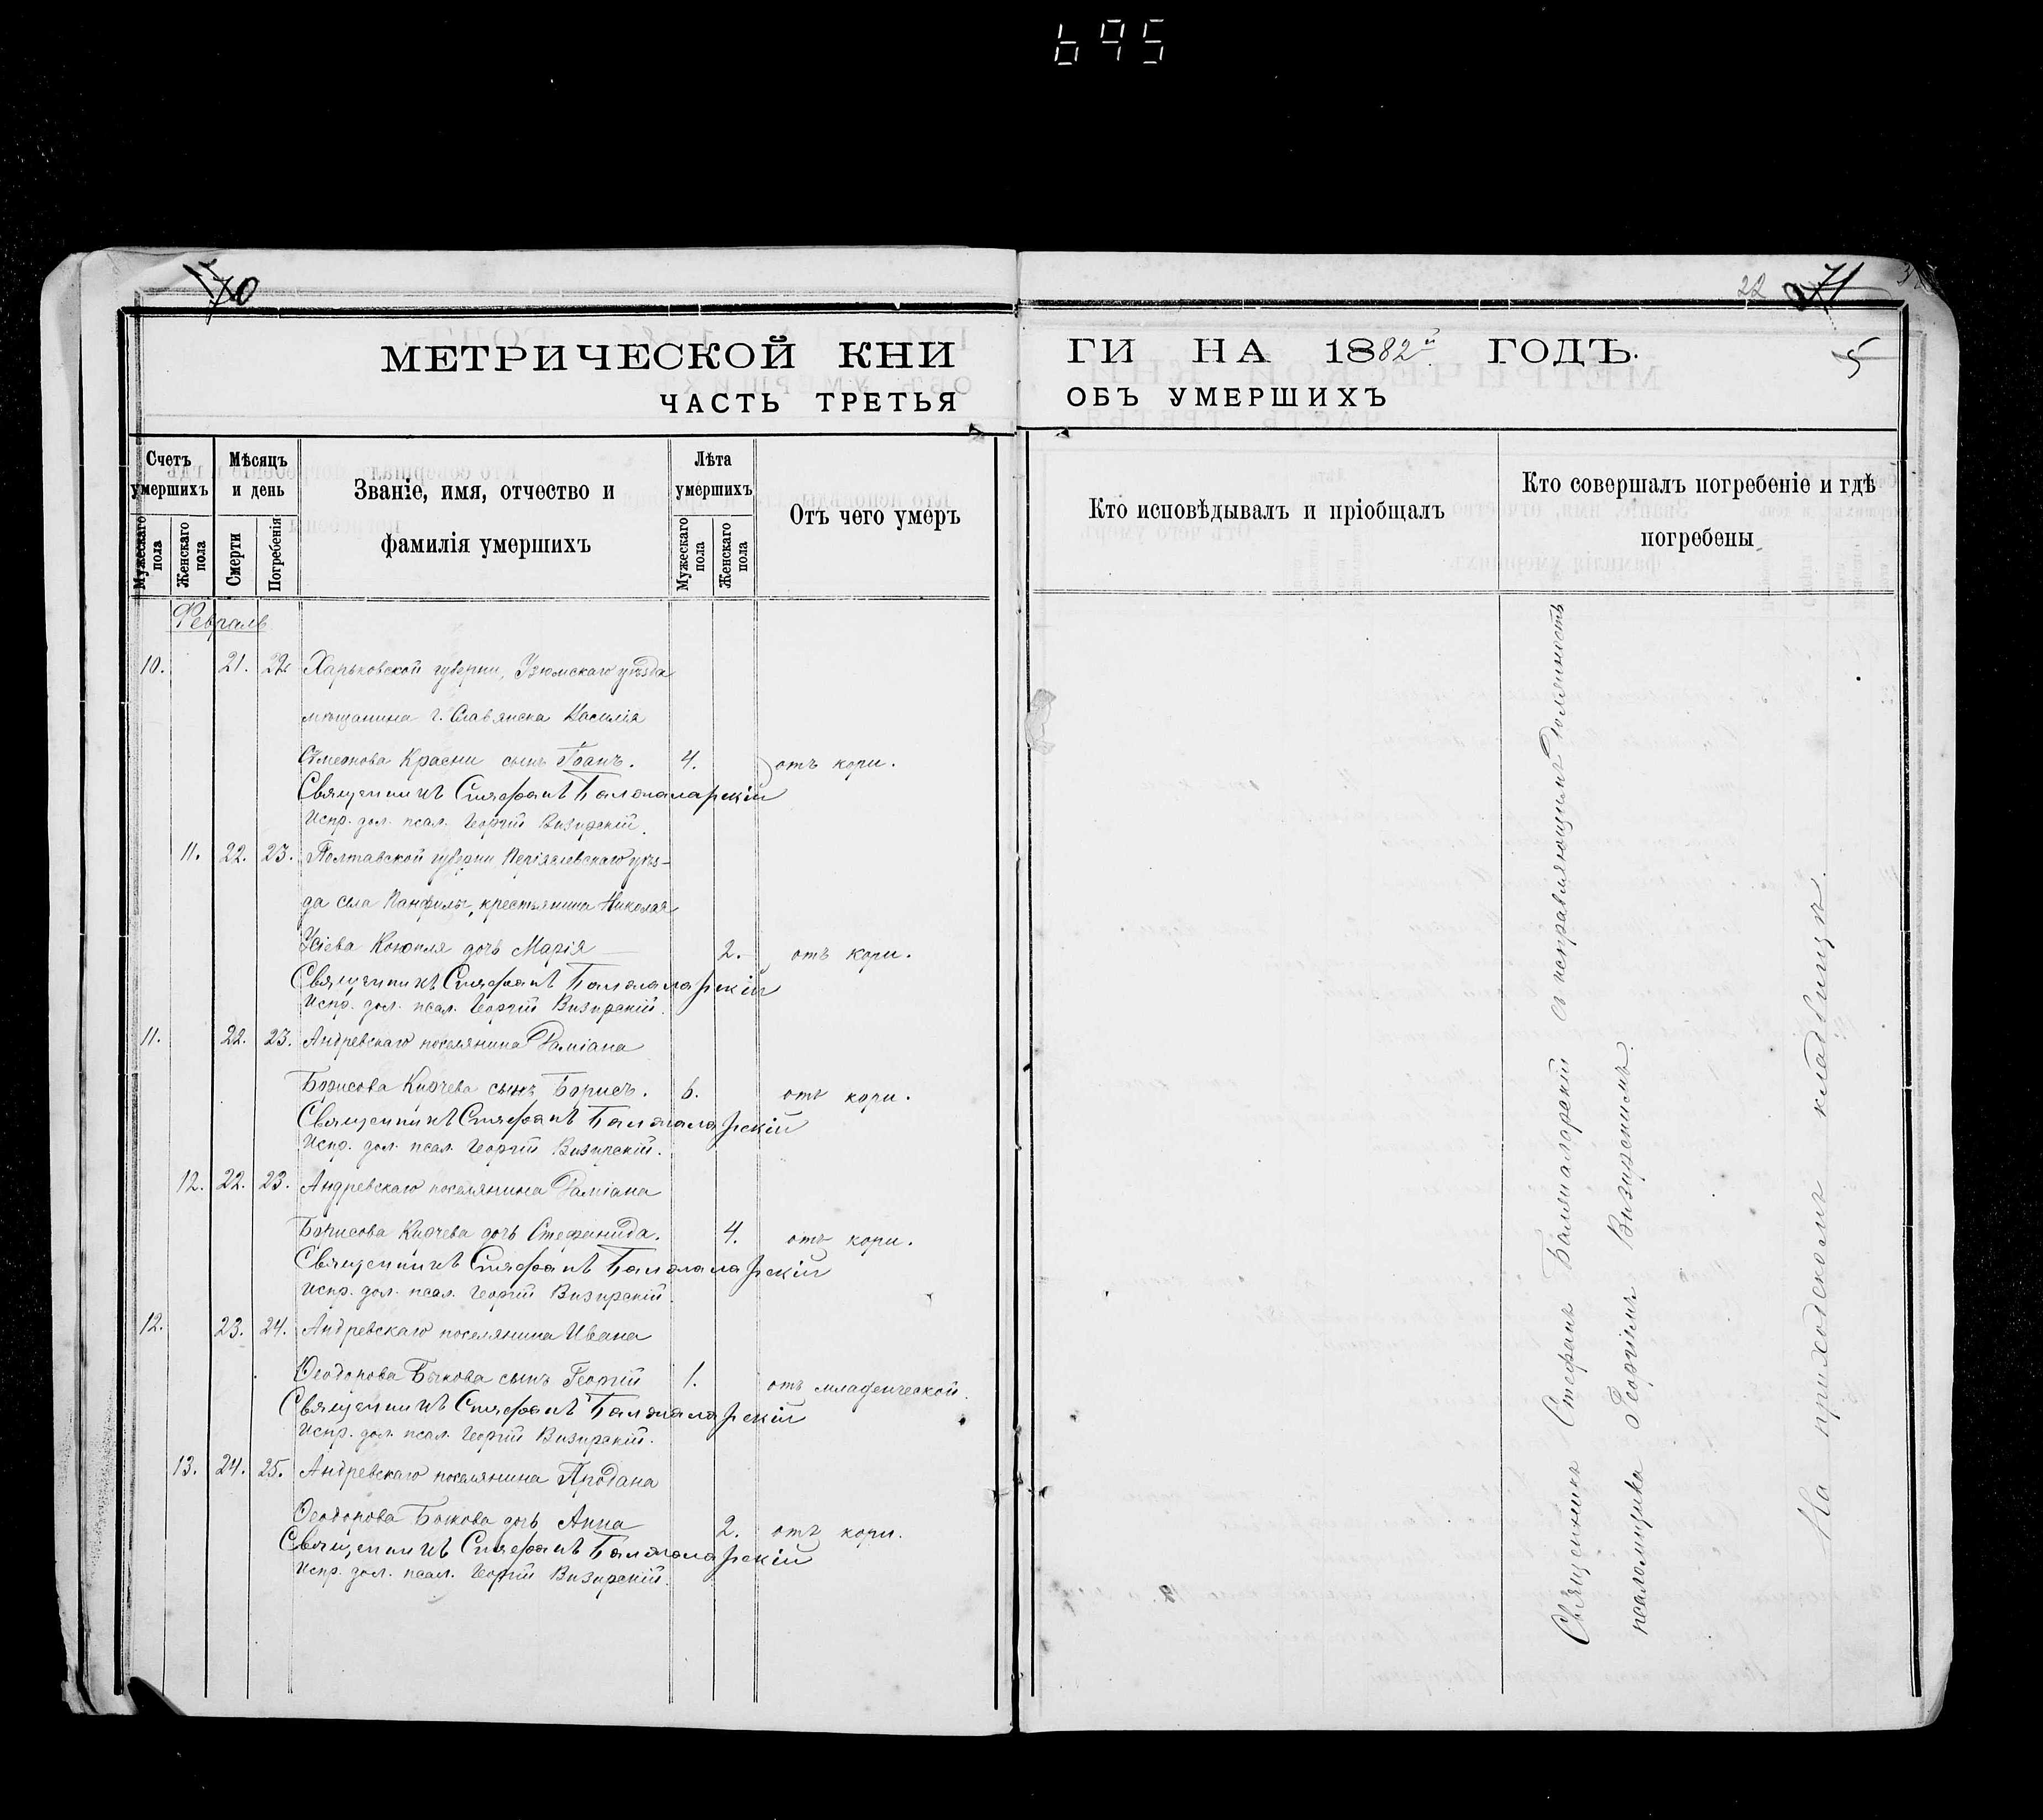 695
70
22 71
5
МЕТРИЧЕСКОЙ КНИ
ЧАСТЬ ТРЕТЬЯ
ГИ НА 1882й ГОДЪ.
ОБЪ УМЕРШИХЪ
Счетъ умершихъ
Мужескаго пола
Женскаго пола
Мѣсяцъ и день
Смерти
Погребенія
Званіе, имя, отчество и
фамилія умершихъ
Лѣта умершихъ
Мужескаго пола
Женскаго пола
Отъ чего умеръ
Кто исповѣдывалъ и пріобщалъ
Кто совершалъ погребеніе и гдѣ
погребены
Февраль
10. 21. 22. Харьковской губерни, Изюмскаго уѣзда
мѣщанина г. Славянска Василія
Симеонова Красни сынъ Іоанъ. 4. отъ кори.
Священникъ Стефанъ
Испр. дол. псал. Георгій Визирскій.
11. 22. 23. Полтавской губерни уѣз-
да села Панфилы, крестьянина Николая
дочь Марія 2. отъ кори.
Священникъ Стефанъ
Испр. дол. псал. Георгій Визирскій.
11. 22. 23. Андревскаго поселянина Даміана
Борисова Кирчева сынъ Борисъ. 6. отъ кори.
Священникъ Стефанъ
Испр. дол. псал. Георгій Визирскій.
12. 22. 23. Андревскаго поселянина Даміана
Борисова Кирчева дочь Стефанида. 4. отъ кори.
Священникъ Стефанъ
Испр. дол. псал. Георгій Визирскій.
12. 23. 24. Андревскаго поселянина Ивана
Ѳеодорова сынъ Георгій 1. отъ младенческой.
Священникъ Стефанъ
Испр. дол. псал. Георгій Визирскій.
13. 24. 25. Андревскаго поселянина Продана
Ѳеодорова дочь Анна 2. отъ кори.
Священникъ Стефанъ
Испр. дол. псал. Георгій Визирскій.
Священникъ Стефанъ съ исправляющимъ должность
псаломщика Георгіемъ Визирскимъ.
На приходскомъ кладбищѣ.